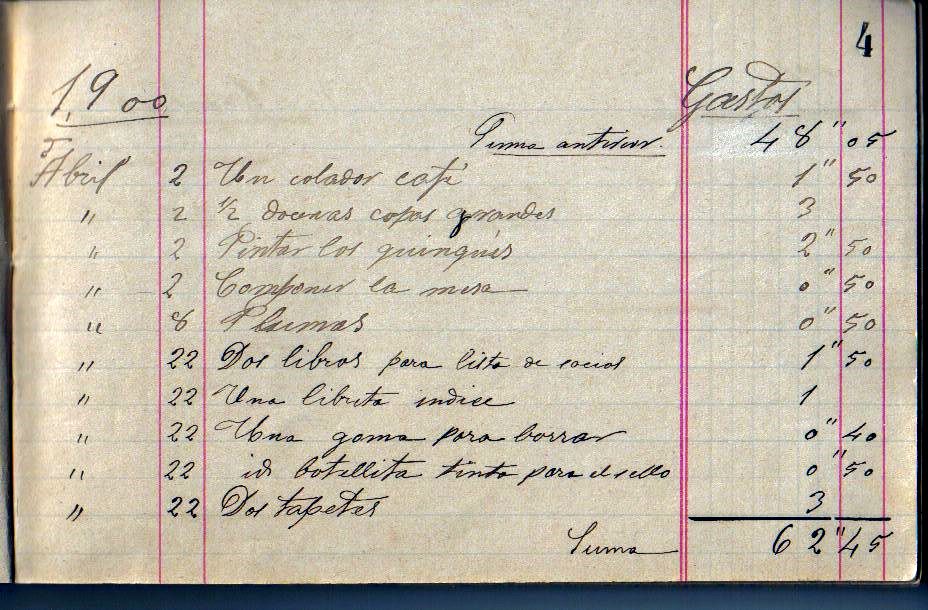 4
1,900 Gastos
Suma anterior. 48"05
Abril 2 Un colador café 1"50
" 2 1/2 docenas copas grandes 3
" 2 Pintar los quinqués 2"50
" 2 Componer la mesa 0"50
" 8 Plumas 0"50
" 22 Dos libros para lista de socios 1"50
" 22 Una libreta indice 1
" 22 Una goma para borrar 0"40
" 22 id botellita tinta para el sello 0"50
" 22 Dos tapetes 3
Suma 62"45